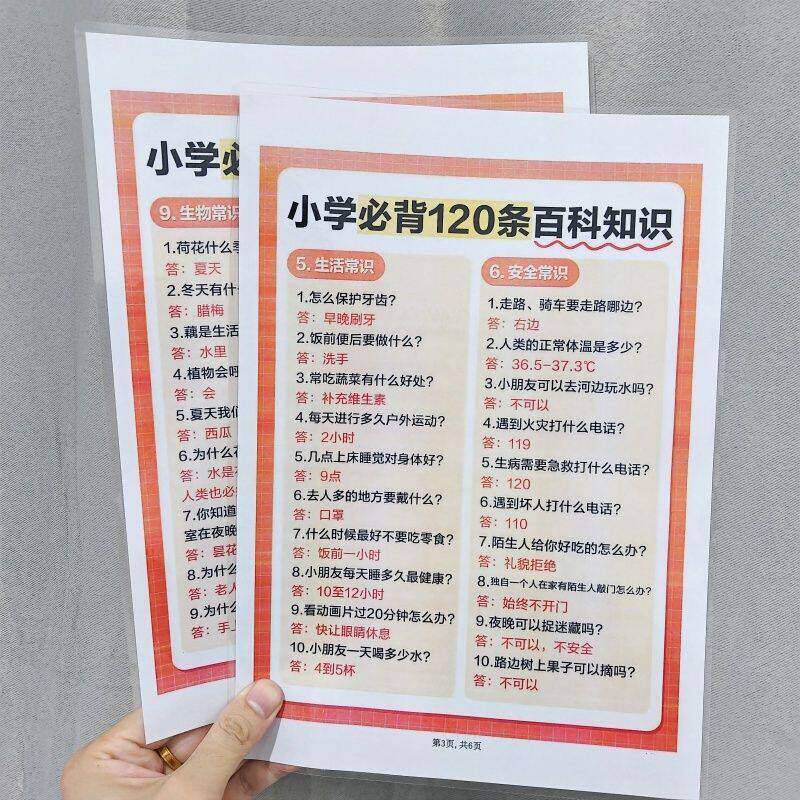 小学必
9. 生物常识
1.荷花什么季
答：夏天
2.冬天有什
答：腊梅
3.藕是生活
答：水里
4.植物会呼
答：会
5.夏天我们
答：西瓜
6.为什么花
答：水是花
人类也必
7.你知道
室在夜晚
答：昙花
8.为什么
答：老人
9.为什么
答：手上
小学必背120条百科知识
5. 生活常识
1.怎么保护牙齿？
答：早晚刷牙
2.饭前便后要做什么？
答：洗手
3.常吃蔬菜有什么好处？
答：补充维生素
4.每天进行多久户外运动？
答：2小时
5.几点上床睡觉对身体好？
答：9点
6.去人多的地方要戴什么？
答：口罩
7.什么时候最好不要吃零食？
答：饭前一小时
8.小朋友每天睡多久最健康？
答：10至12小时
9.看动画片过20分钟怎么办？
答：快让眼睛休息
10.小朋友一天喝多少水？
答：4到5杯
6. 安全常识
1.走路、骑车要走路哪边？
答：右边
2.人类的正常体温是多少？
答：36.5-37.3℃
3.小朋友可以去河边玩水吗？
答：不可以
4.遇到火灾打什么电话？
答：119
5.生病需要急救打什么电话？
答：120
6.遇到坏人打什么电话？
答：110
7.陌生人给你好吃的怎么办？
答：礼貌拒绝
8.独自一个人在家有陌生人敲门怎么办？
答：始终不开门
9.夜晚可以捉迷藏吗？
答：不可以，不安全
10.路边树上果子可以摘吗？
答：不可以
第3页, 共6页